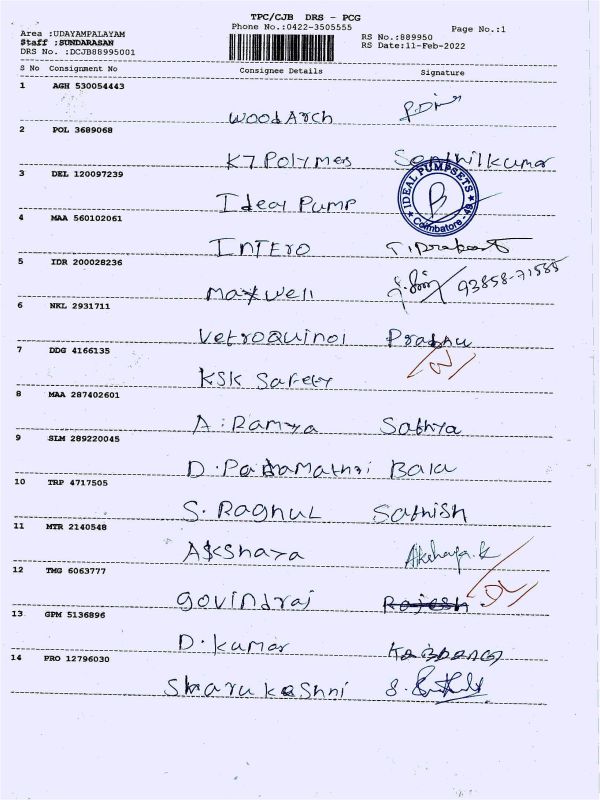 TPC/CJB DRS - PCG
Area :UDAYAMPALAYAM Phone No.:0422-3505555 Page No.:1
Staff :SUNDARASAN RS No.:889950
DRS No. :DCJB88995001 RS Date:11-Feb-2022
S No Consignment No Consignee Details Signature
1 AGH 530054443
Wood Arch
2 POL 3689068
K7 Polymers Senthilkumar
3 DEL 120097239
Ideal Pump IDEAL PUMPSETS Coimbatore - 49
4 MAA 560102061
INTERO T. Prakash
5 IDR 200028236
Maxwell 93858-71585
6 NKL 2931711
Vetroquinol Prabhu
7 DDG 4166135
KSK Safety
8 MAA 287402601
A. Ramya Sathya
9 SLM 289220045
D. Padamathri Bala
10 TRP 4717505
S. Raghul Sathish
11 MTR 2140548
Akshaya Akshaya.k
12 TMG 6063777
Govindraj Rajesh
13 GPM 5136896
D. Kumar
14 PRO 12796030
Sharukeshni